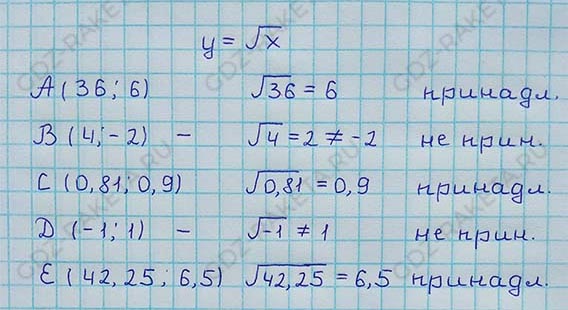 y = √x
A (36; 6) √36 = 6 принадл.
B (4; -2) - √4 = 2 ≠ -2 не прин.
C (0,81; 0,9) √0,81 = 0,9 принадл.
D (-1; 1) - √-1 ≠ 1 не прин.
E (42,25; 6,5) √42,25 = 6,5 принадл.
GDZ-RAKETA.RU